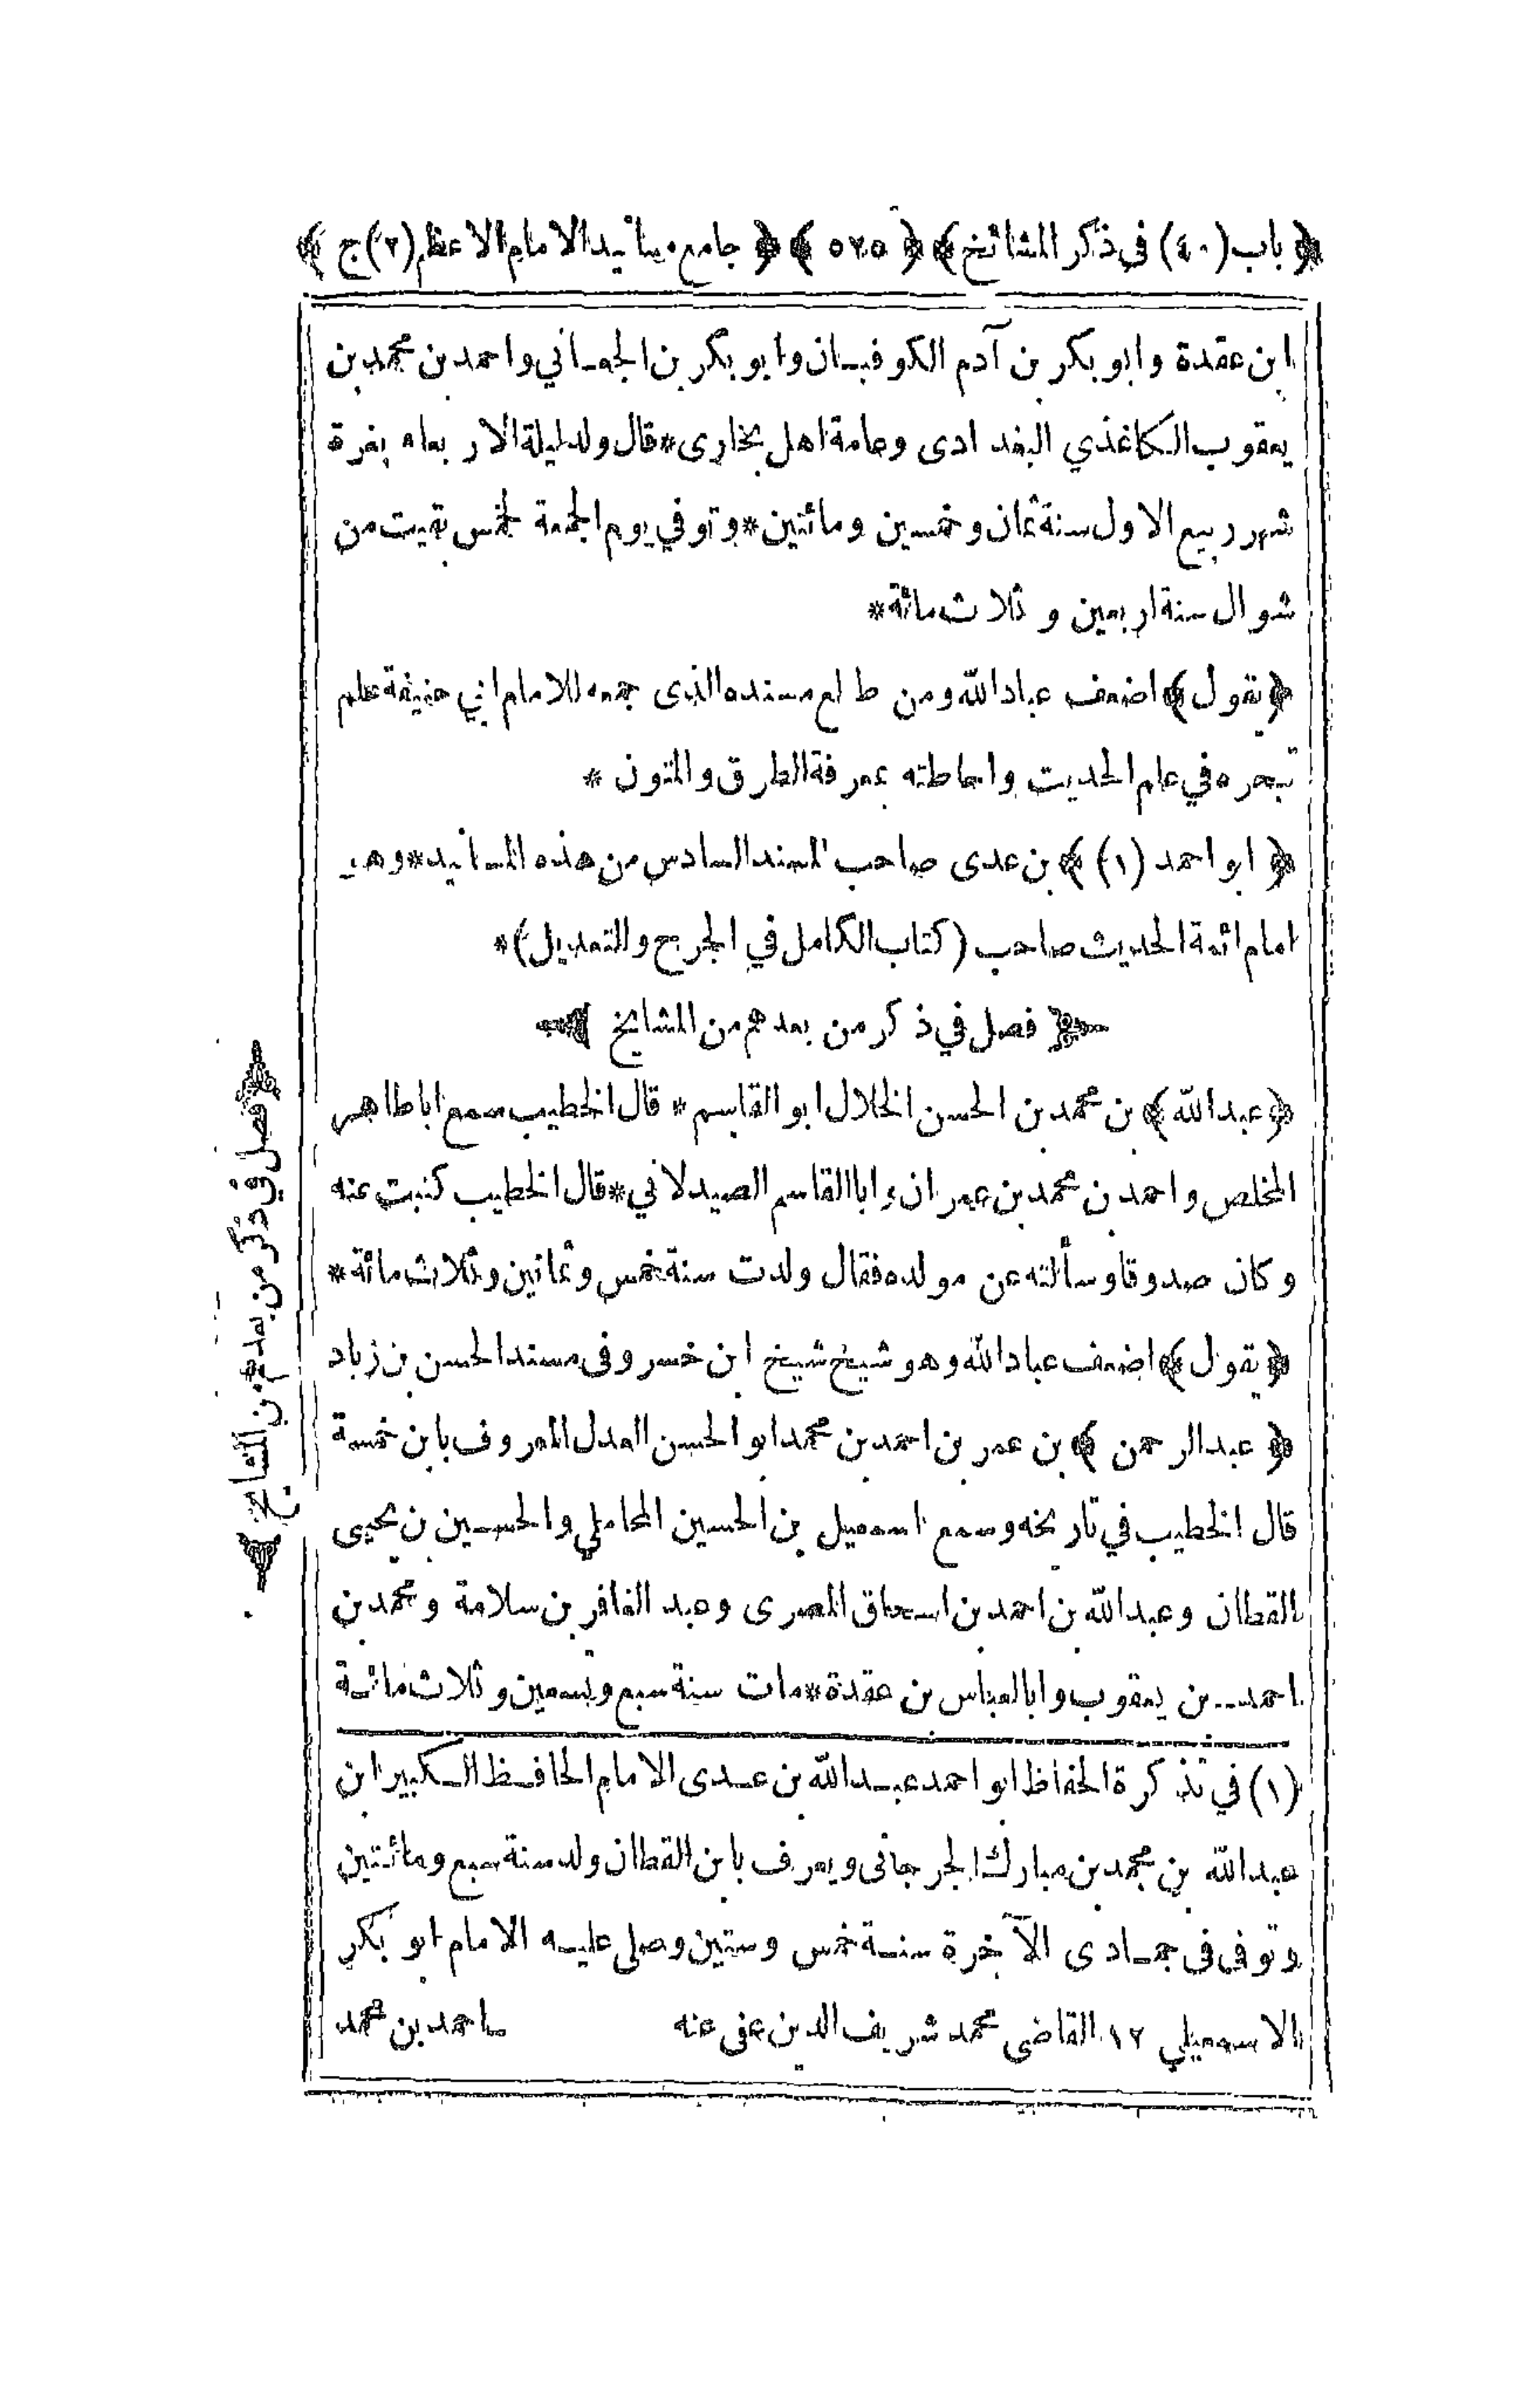 ﴿ باب (٤٠) في ذكر المشائخ ﴾ ﴿ ٥٢٥ ﴾ ﴿ جامع مسانيد الامام الاعظم (٢) ج ﴾
ابن عقدة وابو بكر بن آدم الكوفيان وابو بكر بن الجعاني واحمد بن محمد بن
يعقوب الكاغذي البغدادى وعامة اهل بخارى * قال ولد ليلة الاربعاء بغرة
شهر ربيع الاول سنة ثمان وخمسين ومائتين * وتوفي يوم الجمعة لخمس بقيت من
شوال سنة اربعين وثلاث مائة *
﴿ يقول ﴾ اضعف عباد الله ومن طالع مسنده الذى جمعه للامام ابي حنيفة علم
تبحره في علم الحديث واحاطته بمعرفة الطرق والمتون *
﴿ ابو احمد (١) ﴾ بن عدى صاحب المسند السادس من هذه المسانيد * وهو
امام ائمة الحديث صاحب (كتاب الكامل في الجرح والتعديل) *
﴿ فصل في ذكر من بعدهم من المشايخ ﴾
﴿ عبد الله ﴾ بن محمد بن الحسن الخلال ابو القاسم * قال الخطيب سمع اباطاهر
المخلص واحمد بن محمد بن عمران وابا القاسم الصيدلاني * قال الخطيب كتبت عنه
وكان صدوقا وسألته عن مولده فقال ولدت سنة خمس وثمانين وثلاث مائة *
﴿ يقول ﴾ اضعف عباد الله وهو شيخ شيخ ابن خسرو فى مسند الحسن بن زياد
﴿ عبد الرحمن ﴾ بن عمر بن احمد بن محمد ابو الحسن العدل المعروف بابن خمسة
قال الخطيب في تاريخه وسمع اسمعيل بن الحسين المحاملي والحسين بن يحيى
القطان وعبد الله بن احمد بن اسحاق المصرى وعبد الغافر بن سلامة ومحمد بن
احمد بن يعقوب وابا العباس بن عقدة * مات سنة سبع وتسعين وثلاث مائة
(١) في تذكرة الحفاظ ابو احمد عبد الله بن عدى الامام الحافظ الكبير ابن
عبد الله بن محمد بن مبارك الجرجانى ويعرف بابن القطان ولد سنة سبع ومائتين
وتوفى فى جمادى الآخرة سنة خمس وستين وصلى عليه الامام ابو بكر
الاسمعيلي ١٢ القاضى محمد شريف الدين عفى عنه احمد بن محمد
﴿ فصل في ذكر من بعدهم من المشايخ ﴾